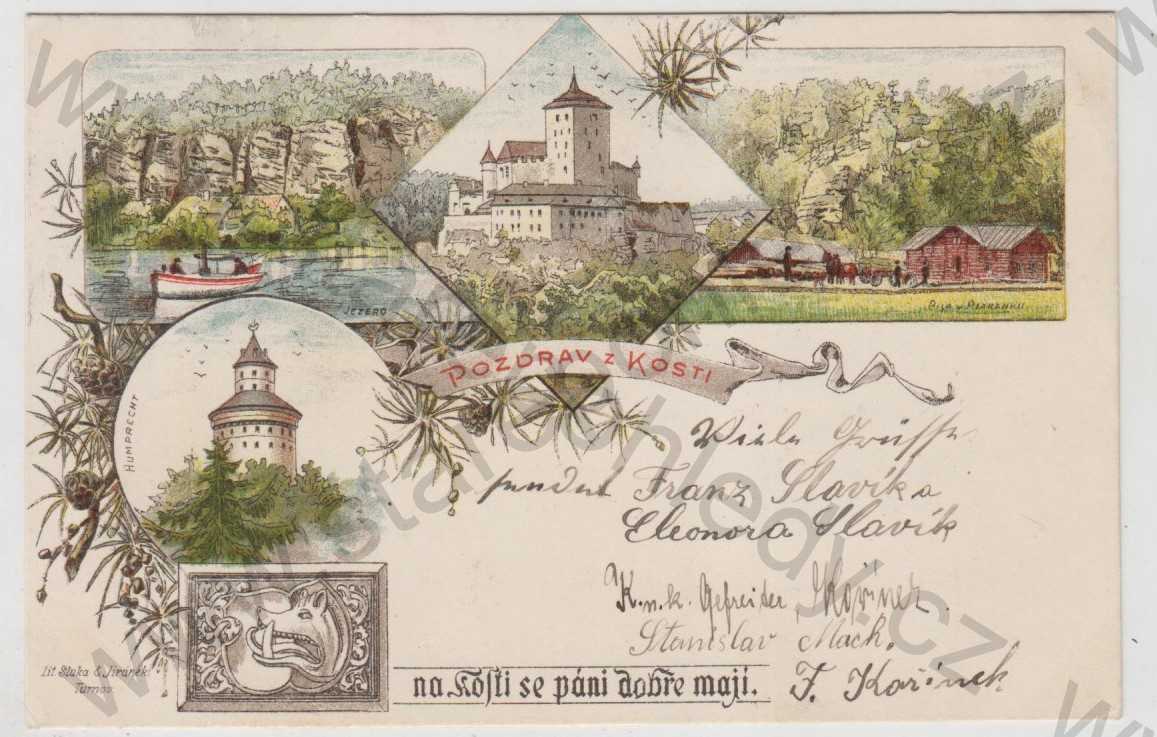 JEZERO
PILA v PLAKÁNKU
HUMPRECHT
POZDRAV z KOSTI
Viele Grüsse
sendet Franz Slavík a
Eleonora Slavík
K.u.k. Gefreiter
Stanislav Mach.
F. Kořínek
Lit. Sluka & Jiránek
Turnov.
na Kosti se páni dobře mají.
www.starepohledy.cz